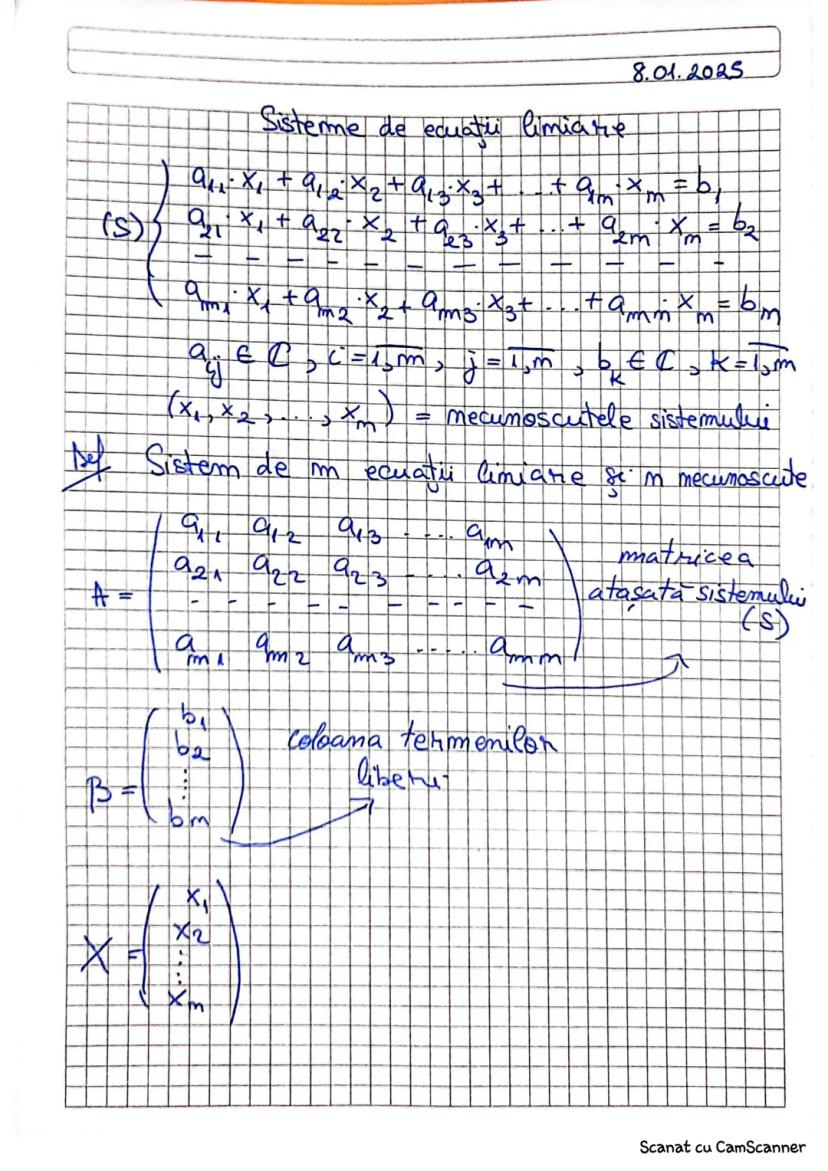 8.01.2025
Sisteme de ecuații liniare
(S) { a₁₁·x₁ + a₁₂·x₂ + a₁₃·x₃ + ... + a₁ₙ·xₙ = b₁
a₂₁·x₁ + a₂₂·x₂ + a₂₃·x₃ + ... + a₂ₙ·xₙ = b₂
– – – – – – – – – – – –
aₘ₁·x₁ + aₘ₂·x₂ + aₘ₃·x₃ + ... + aₘₙ·xₙ = bₘ
aᵢⱼ ∈ ℂ, i = 1,m, j = 1,n, bₖ ∈ ℂ, k = 1,m
(x₁, x₂, ..., xₙ) = necunoscutele sistemului
Def Sistem de m ecuații liniare și n necunoscute
a₁₁ a₁₂ a₁₃ ..... a₁ₙ
a₂₁ a₂₂ a₂₃ ..... a₂ₙ
A = – – – – – – – – – –
aₘ₁ aₘ₂ aₘ₃ ..... aₘₙ
matricea
atașată sistemului
(S)
b₁
b₂
B = ⋮
bₘ
coloana termenilor
liberi
x₁
x₂
X = ⋮
xₙ
Scanat cu CamScanner